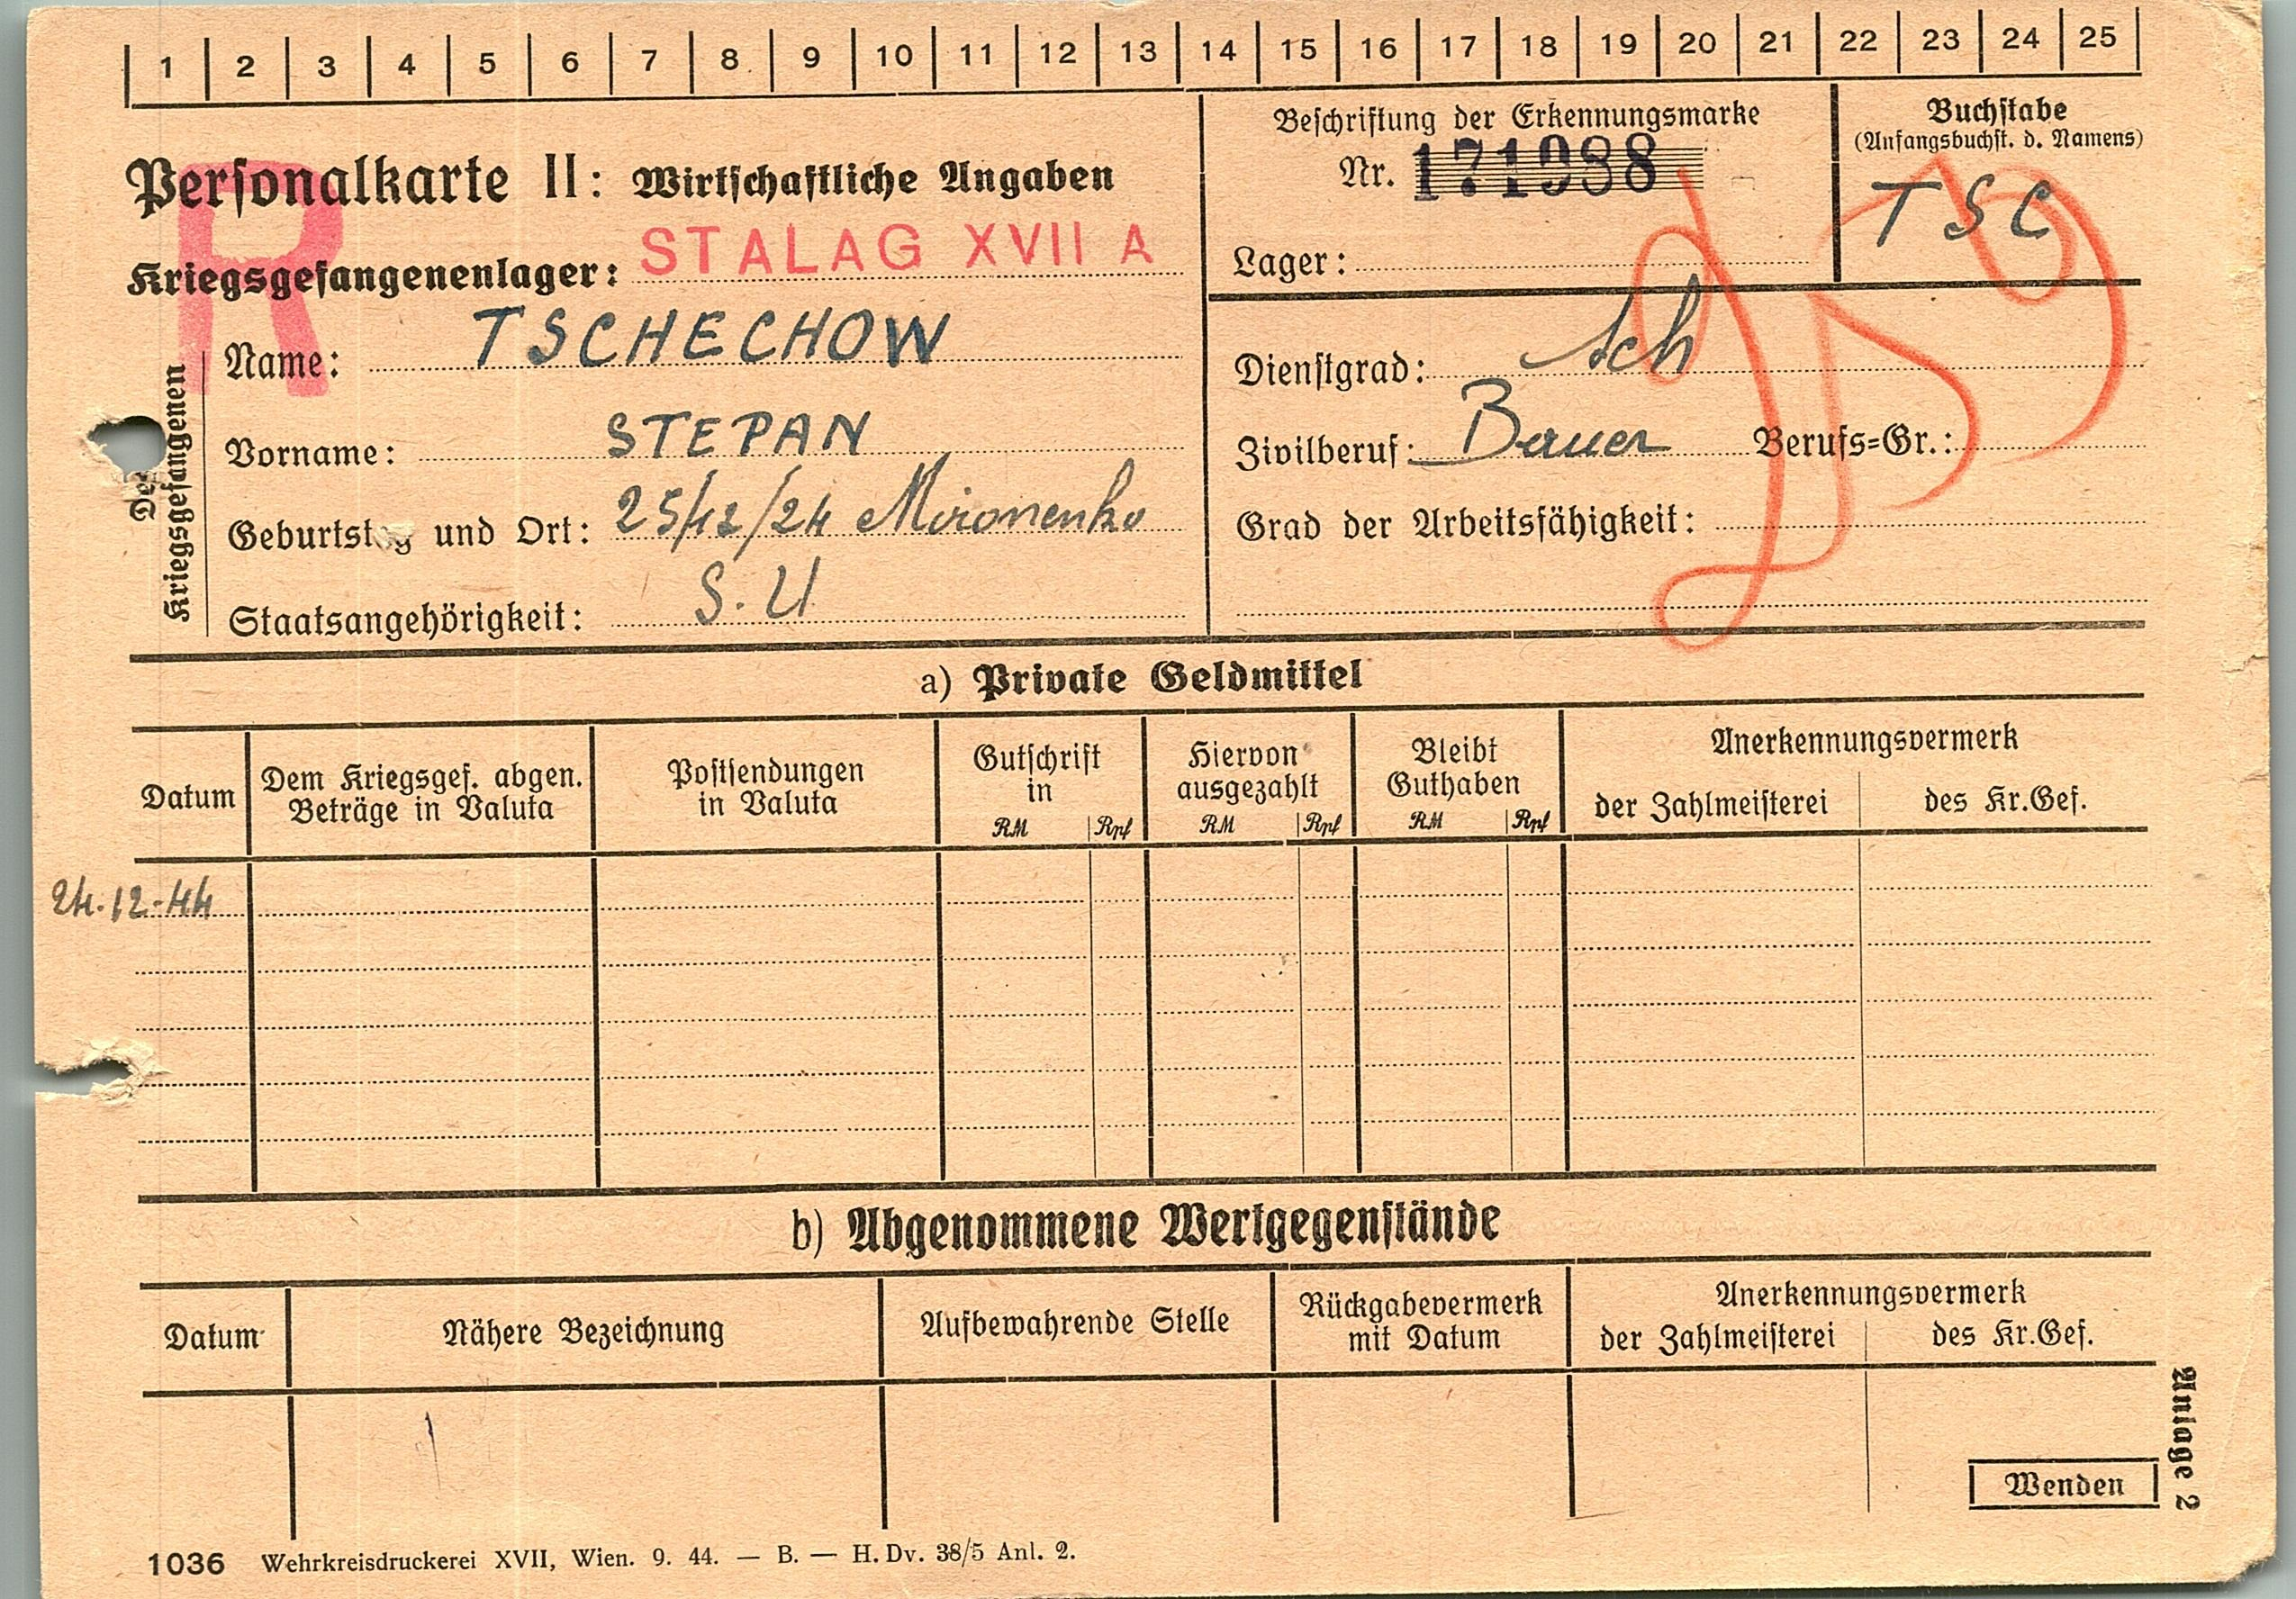 1 2 3 4 5 6 7 8 9 10 11 12 13 14 15 16 17 18 19 20 21 22 23 24 25
Personalkarte II: Wirtschaftliche Angaben
R
Kriegsgefangenenlager: STALAG XVII A
Beschriftung der Erkennungsmarke
Nr. 171988
Lager:
Buchstabe
(Anfangsbuchst. d. Namens)
TSC
Des Kriegsgefangenen
Name: TSCHECHOW
Vorname: STEPAN
Geburtstag und Ort: 25/12/24 Mironenko
Staatsangehörigkeit: S. U
Dienstgrad: Sch
Zivilberuf: Bauer Berufs=Gr.:
Grad der Arbeitsfähigkeit:
a) Private Geldmittel
Datum
Dem Kriegsgef. abgen.
Beträge in Valuta
Postsendungen
in Valuta
Gutschrift
in
RM Rpf
Hiervon
ausgezahlt
RM Rpf
Bleibt
Guthaben
RM Rpf
Anerkennungsvermerk
der Zahlmeisterei des Kr.Gef.
24.12.44
b) Abgenommene Wertgegenstände
Datum
Nähere Bezeichnung
Aufbewahrende Stelle
Rückgabevermerk
mit Datum
Anerkennungsvermerk
der Zahlmeisterei des Kr.Gef.
Wenden
Anlage 2
1036 Wehrkreisdruckerei XVII, Wien. 9. 44. — B. — H. Dv. 38/5 Anl. 2.